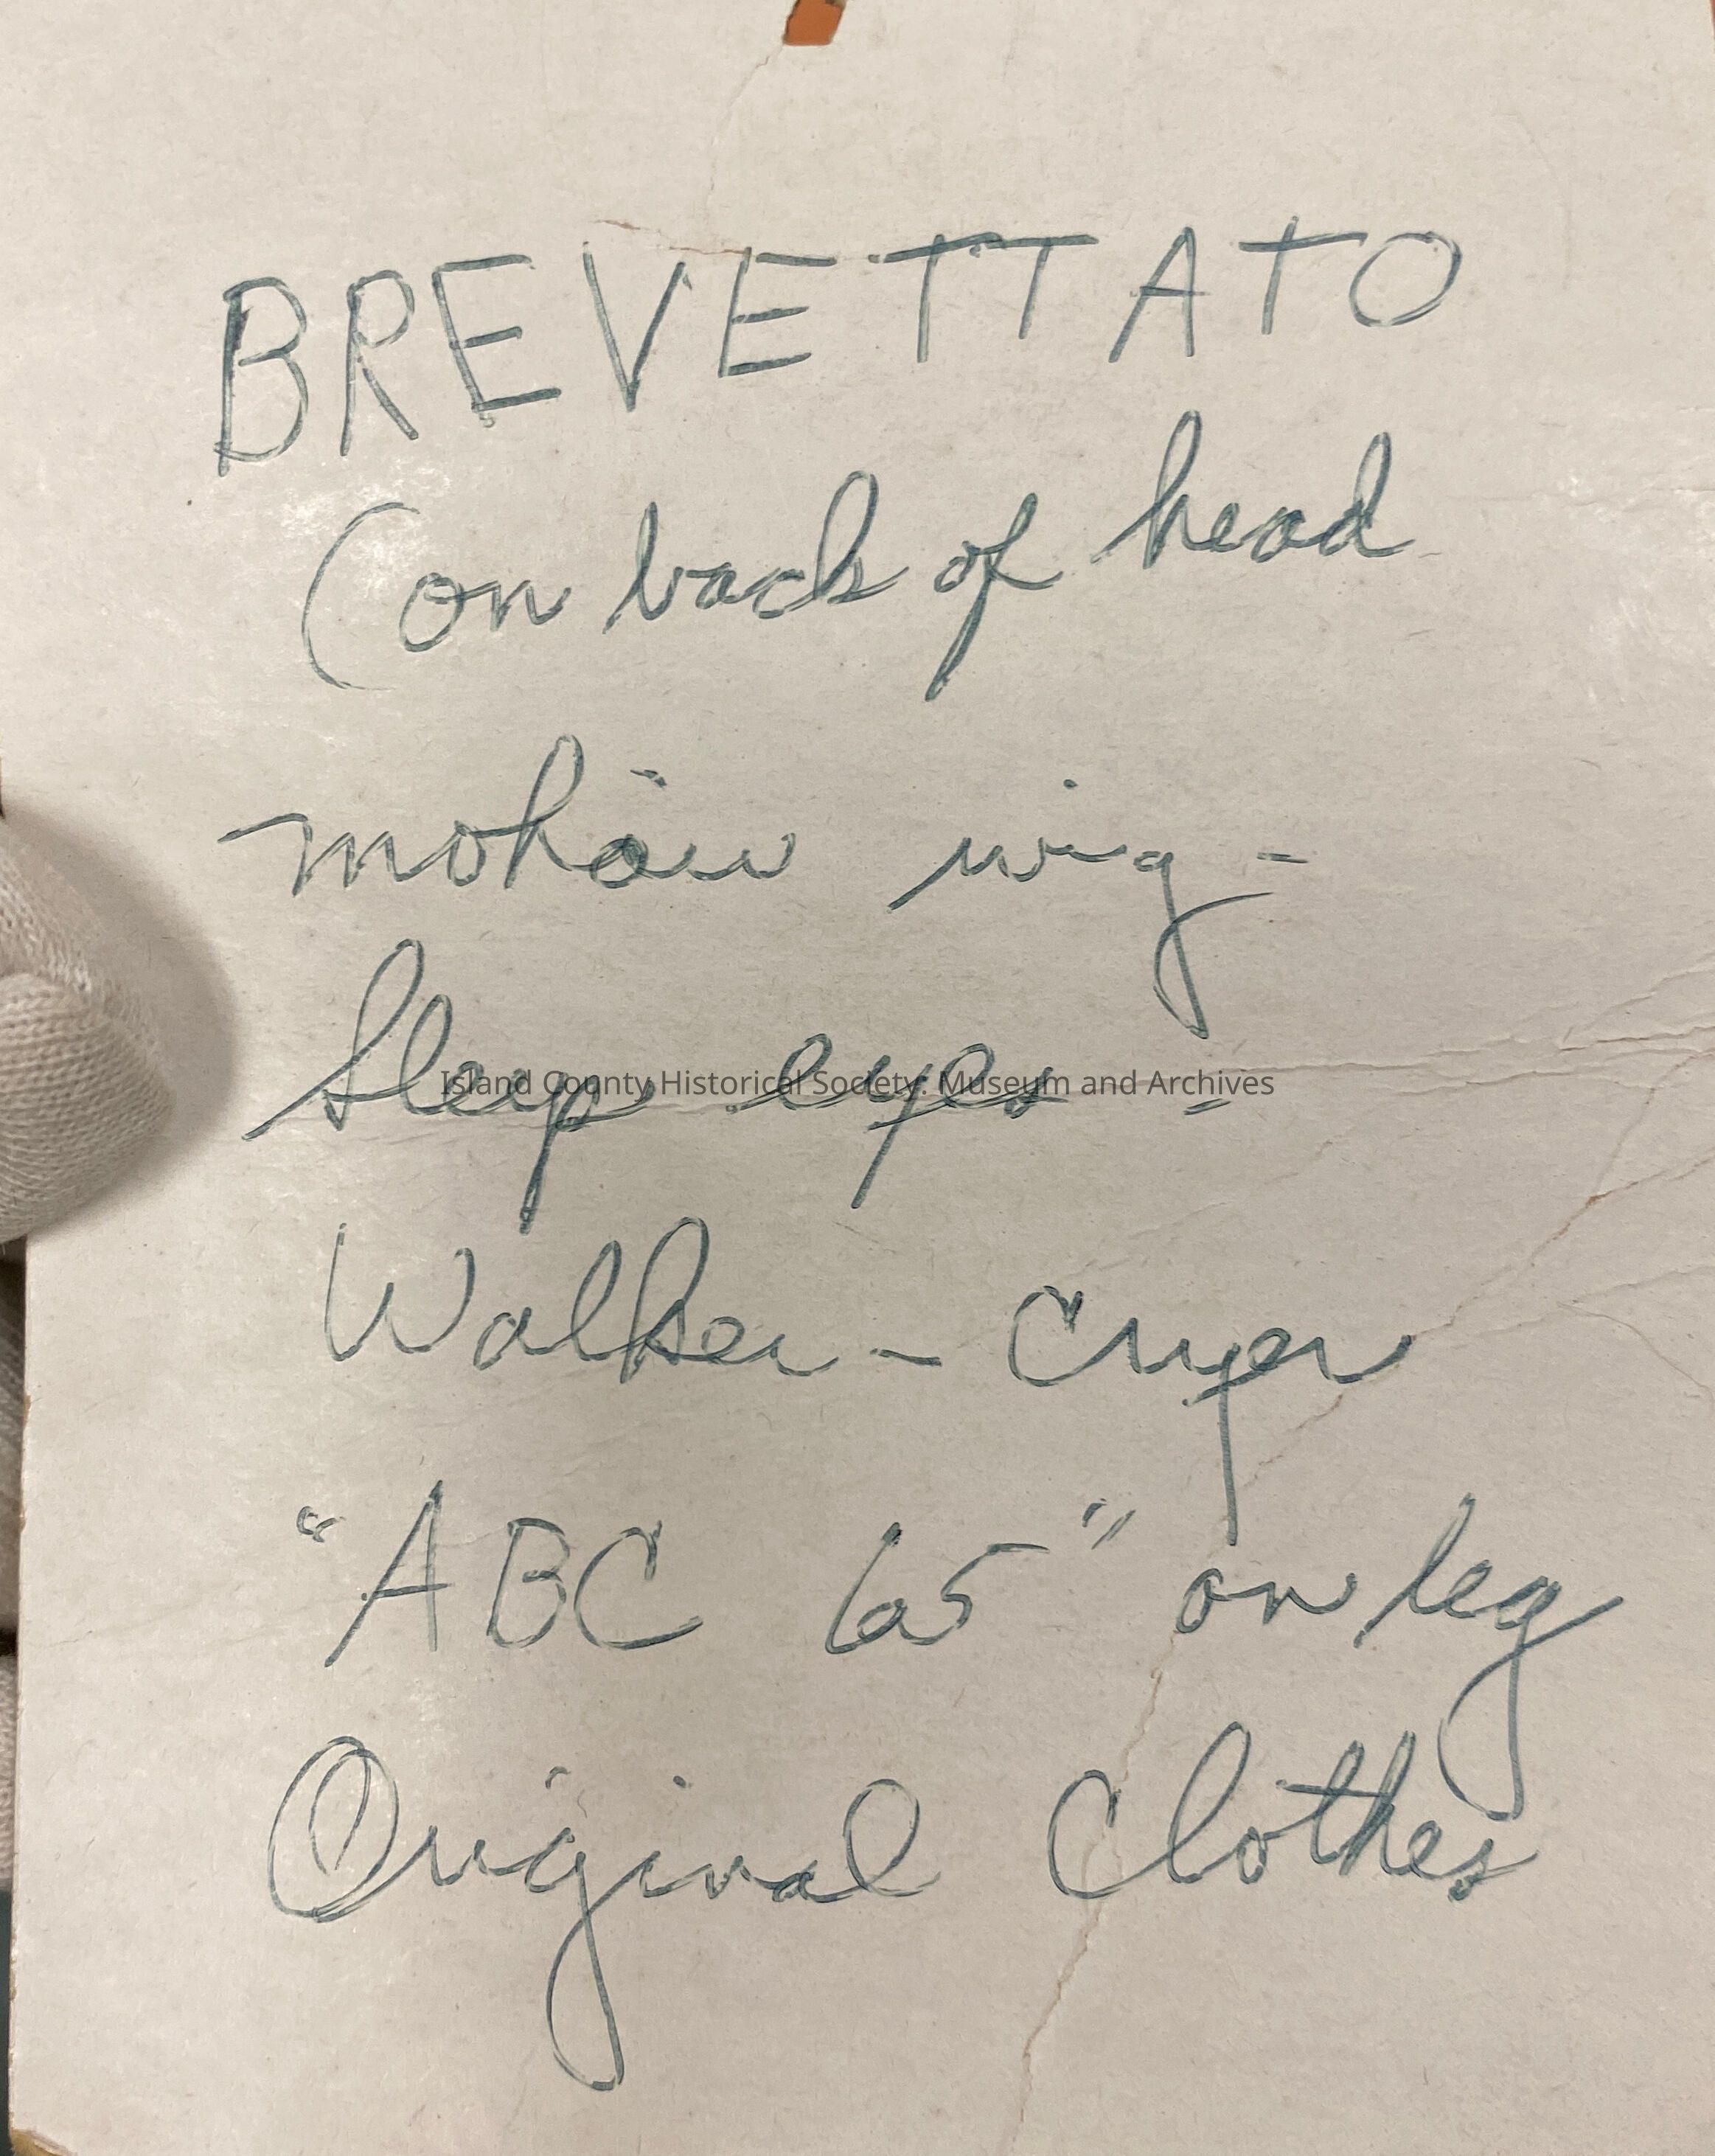 BREVETTATO
(on back of head
mohair wig -
Sleep eyes -
Island County Historical Society: Museum and Archives
Walker - Cryer
"ABC 65" on leg
Original Clothes